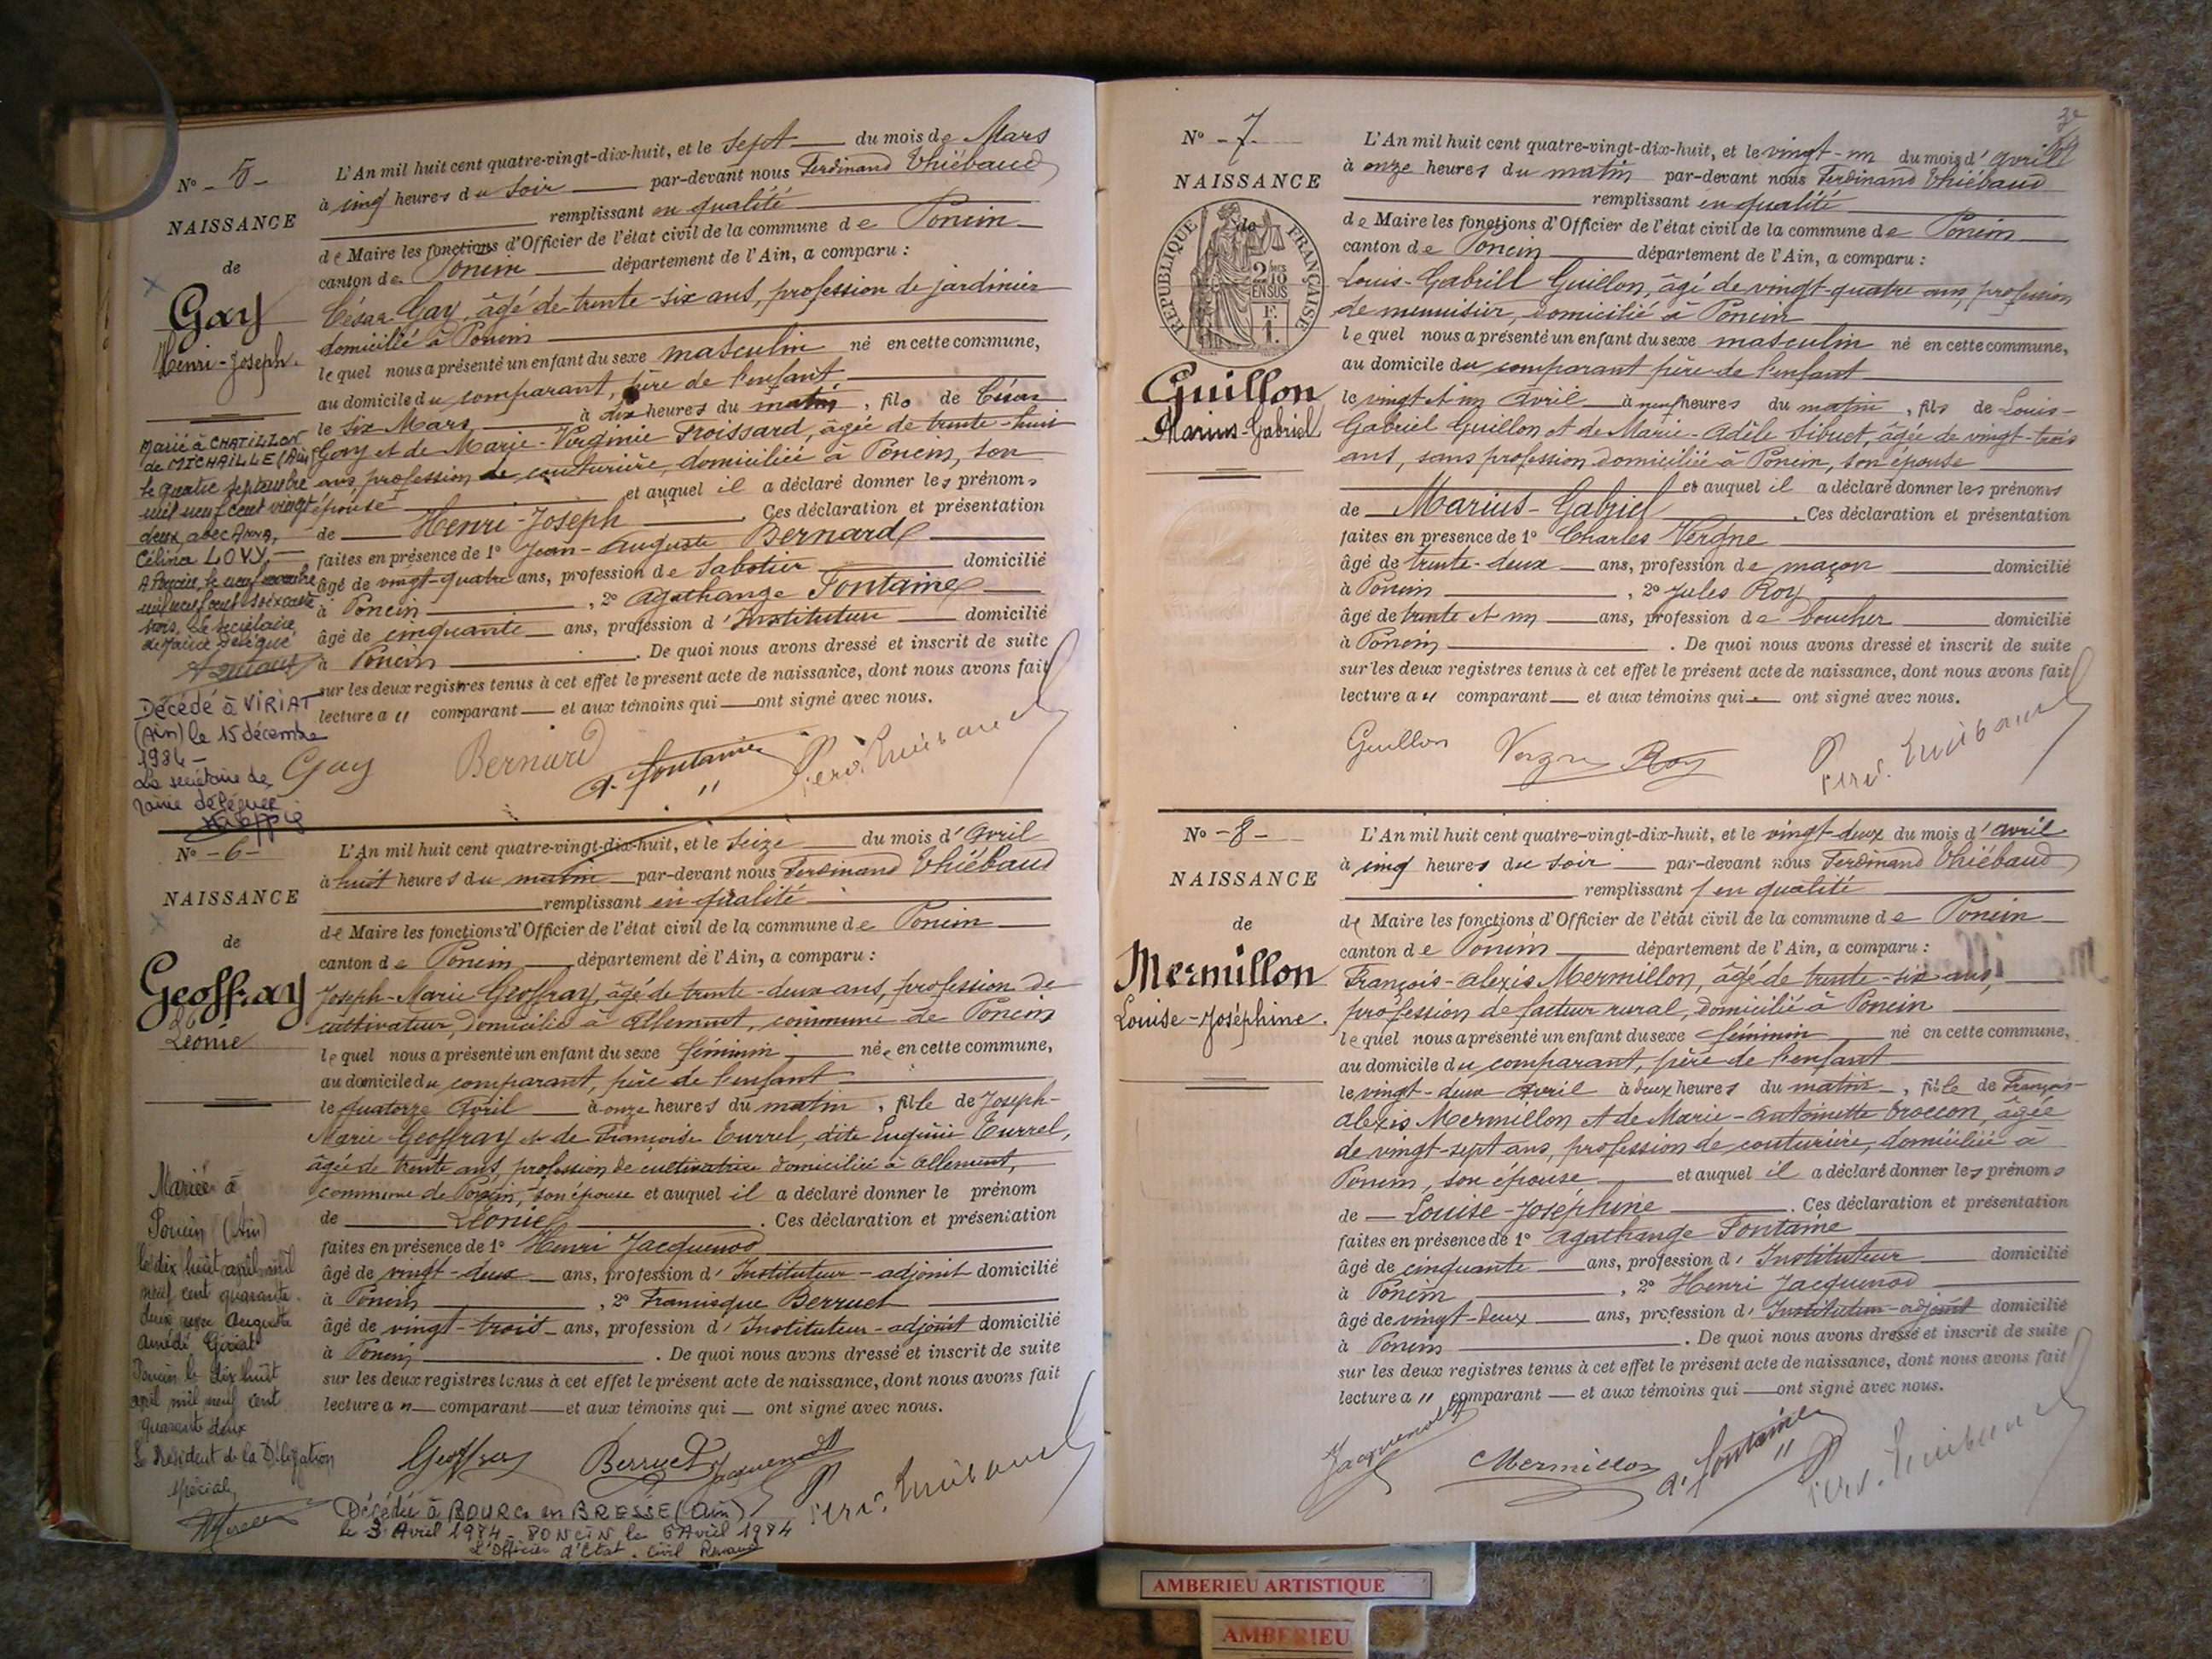 N° - 5 -
NAISSANCE
de
Gay
Henri-Joseph.
Marié à CHATILLON
de MICHAILLE (Ain)
le quatre septembre
mil neuf cent vingt
deux avec Anna,
Célina LOVY,
A Poncin, le
mil neuf cent soixante
trois, Le secrétaire
de mairie délégué
Décédé à VIRIAT
(Ain) le 15 décembre
1984 -
La secrétaire de
mairie déléguée
L'An mil huit cent quatre-vingt-dix-huit, et le sept du mois de Mars
à cinq heures du soir par-devant nous Ferdinand Thiébaud
remplissant en qualité
de Maire les fonctions d'Officier de l'état civil de la commune de Poncin
canton de Poncin département de l'Ain, a comparu :
César Gay, âgé de trente-six ans, profession de jardinier
domicilié à Poncin
lequel nous a présenté un enfant du sexe masculin né en cette commune,
au domicile du comparant, père de l'enfant
le six Mars, à dix heures du matin, fils de César
Gay et de Marie-Virginie Froissard, âgée de trente-huit
ans, profession de couturière, domiciliée à Poncin, son
épouse et auquel il a déclaré donner les prénoms
de Henri-Joseph. Ces déclaration et présentation
faites en présence de 1° Jean-Auguste Bernard
âgé de vingt-quatre ans, profession de Sabotier domicilié
à Poncin, 2° Agathange Fontaine
âgé de cinquante ans, profession d'Instituteur domicilié
à Poncin. De quoi nous avons dressé et inscrit de suite
sur les deux registres tenus à cet effet le présent acte de naissance, dont nous avons fait
lecture au comparant et aux témoins qui ont signé avec nous.
Gay Bernard A. Fontaine Ferd. Thiébaud
N° - 6 -
NAISSANCE
de
Geoffray
Léonie
Mariée à
Poncin (Ain)
le dix huit avril mil
neuf cent quarante
deux avec Auguste
Amédé
Poncin le dix huit
avril mil neuf cent
quarante deux
Le Président de la Délégation
spéciale
L'An mil huit cent quatre-vingt-dix-huit, et le seize du mois d'avril
à huit heures du matin par-devant nous Ferdinand Thiébaud
remplissant en qualité
de Maire les fonctions d'Officier de l'état civil de la commune de Poncin
canton de Poncin département de l'Ain, a comparu :
Joseph-Marie Geoffray, âgé de trente-deux ans, profession de
cultivateur, domicilié à Allement, commune de Poncin
lequel nous a présenté un enfant du sexe féminin, née en cette commune,
au domicile du comparant, père de l'enfant
le quatorze Avril à onze heures du matin, fille de Joseph-
Marie Geoffray et de Françoise Turrel, dite Eugénie Turrel,
âgée de trente ans, profession de cultivatrice domiciliée à Allement,
commune de Poncin, son épouse et auquel il a déclaré donner le prénom
de Léonie. Ces déclaration et présentation
faites en présence de 1° Henri Jacquenod
âgé de vingt-deux ans, profession d'Instituteur-adjoint domicilié
à Poncin, 2° Francisque Berruet
âgé de vingt-trois ans, profession d'Instituteur-adjoint domicilié
à Poncin. De quoi nous avons dressé et inscrit de suite
sur les deux registres tenus à cet effet le présent acte de naissance, dont nous avons fait
lecture au comparant et aux témoins qui ont signé avec nous.
Geoffray Berruet Jacquenod Ferd. Thiébaud
Décédée à BOURG en BRESSE (Ain)
le 3 Avril 1984 - PONCIN le 6 Avril 1984
L'Officier d'Etat. Civil
N° - 7 -
NAISSANCE
de
RÉPUBLIQUE FRANÇAISE
2 10
EN SUS
Guillon
Marius-Gabriel
L'An mil huit cent quatre-vingt-dix-huit, et le vingt-un du mois d'avril
à onze heures du matin par-devant nous Ferdinand Thiébaud
remplissant en qualité
de Maire les fonctions d'Officier de l'état civil de la commune de Poncin
canton de Poncin département de l'Ain, a comparu :
Louis-Gabriel Guillon, âgé de vingt-quatre ans, profession
de menuisier, domicilié à Poncin
lequel nous a présenté un enfant du sexe masculin né en cette commune,
au domicile du comparant père de l'enfant
le vingt et un avril à neuf heures du matin, fils de Louis-
Gabriel Guillon et de Marie-Adèle Sibuet, âgée de vingt-trois
ans, sans profession domiciliée à Poncin, son épouse
et auquel il a déclaré donner les prénoms
de Marius-Gabriel. Ces déclaration et présentation
faites en présence de 1° Charles Vergne
âgé de trente-deux ans, profession de maçon domicilié
à Poncin, 2° Jules Roy
âgé de trente et un ans, profession de boucher domicilié
à Poncin. De quoi nous avons dressé et inscrit de suite
sur les deux registres tenus à cet effet le présent acte de naissance, dont nous avons fait
lecture au comparant et aux témoins qui ont signé avec nous.
Guillon Vergne Roy Ferd. Thiébaud
N° - 8 -
NAISSANCE
de
Mermillon
Louise-Joséphine.
L'An mil huit cent quatre-vingt-dix-huit, et le vingt-deux du mois d'avril
à cinq heures du soir par-devant nous Ferdinand Thiébaud
remplissant en qualité
de Maire les fonctions d'Officier de l'état civil de la commune de Poncin
canton de Poncin département de l'Ain, a comparu :
François-Alexis Mermillon, âgé de trente-six ans,
profession de facteur rural, domicilié à Poncin
lequel nous a présenté un enfant du sexe féminin né en cette commune,
au domicile du comparant, père de l'enfant
le vingt-deux Avril à deux heures du matin, fille de François-
Alexis Mermillon et de Marie-Antoinette Troccon, âgée
de vingt-sept ans, profession de couturière, domiciliée à
Poncin, son épouse et auquel il a déclaré donner les prénoms
de Louise-Joséphine. Ces déclaration et présentation
faites en présence de 1° Agathange Fontaine
âgé de cinquante ans, profession d'Instituteur domicilié
à Poncin, 2° Henri Jacquenod
âgé de vingt-deux ans, profession d'Instituteur-adjoint domicilié
à Poncin. De quoi nous avons dressé et inscrit de suite
sur les deux registres tenus à cet effet le présent acte de naissance, dont nous avons fait
lecture au comparant et aux témoins qui ont signé avec nous.
Jacquenod Mermillon A. Fontaine Ferd. Thiébaud
AMBERIEU ARTISTIQUE
AMBERIEU